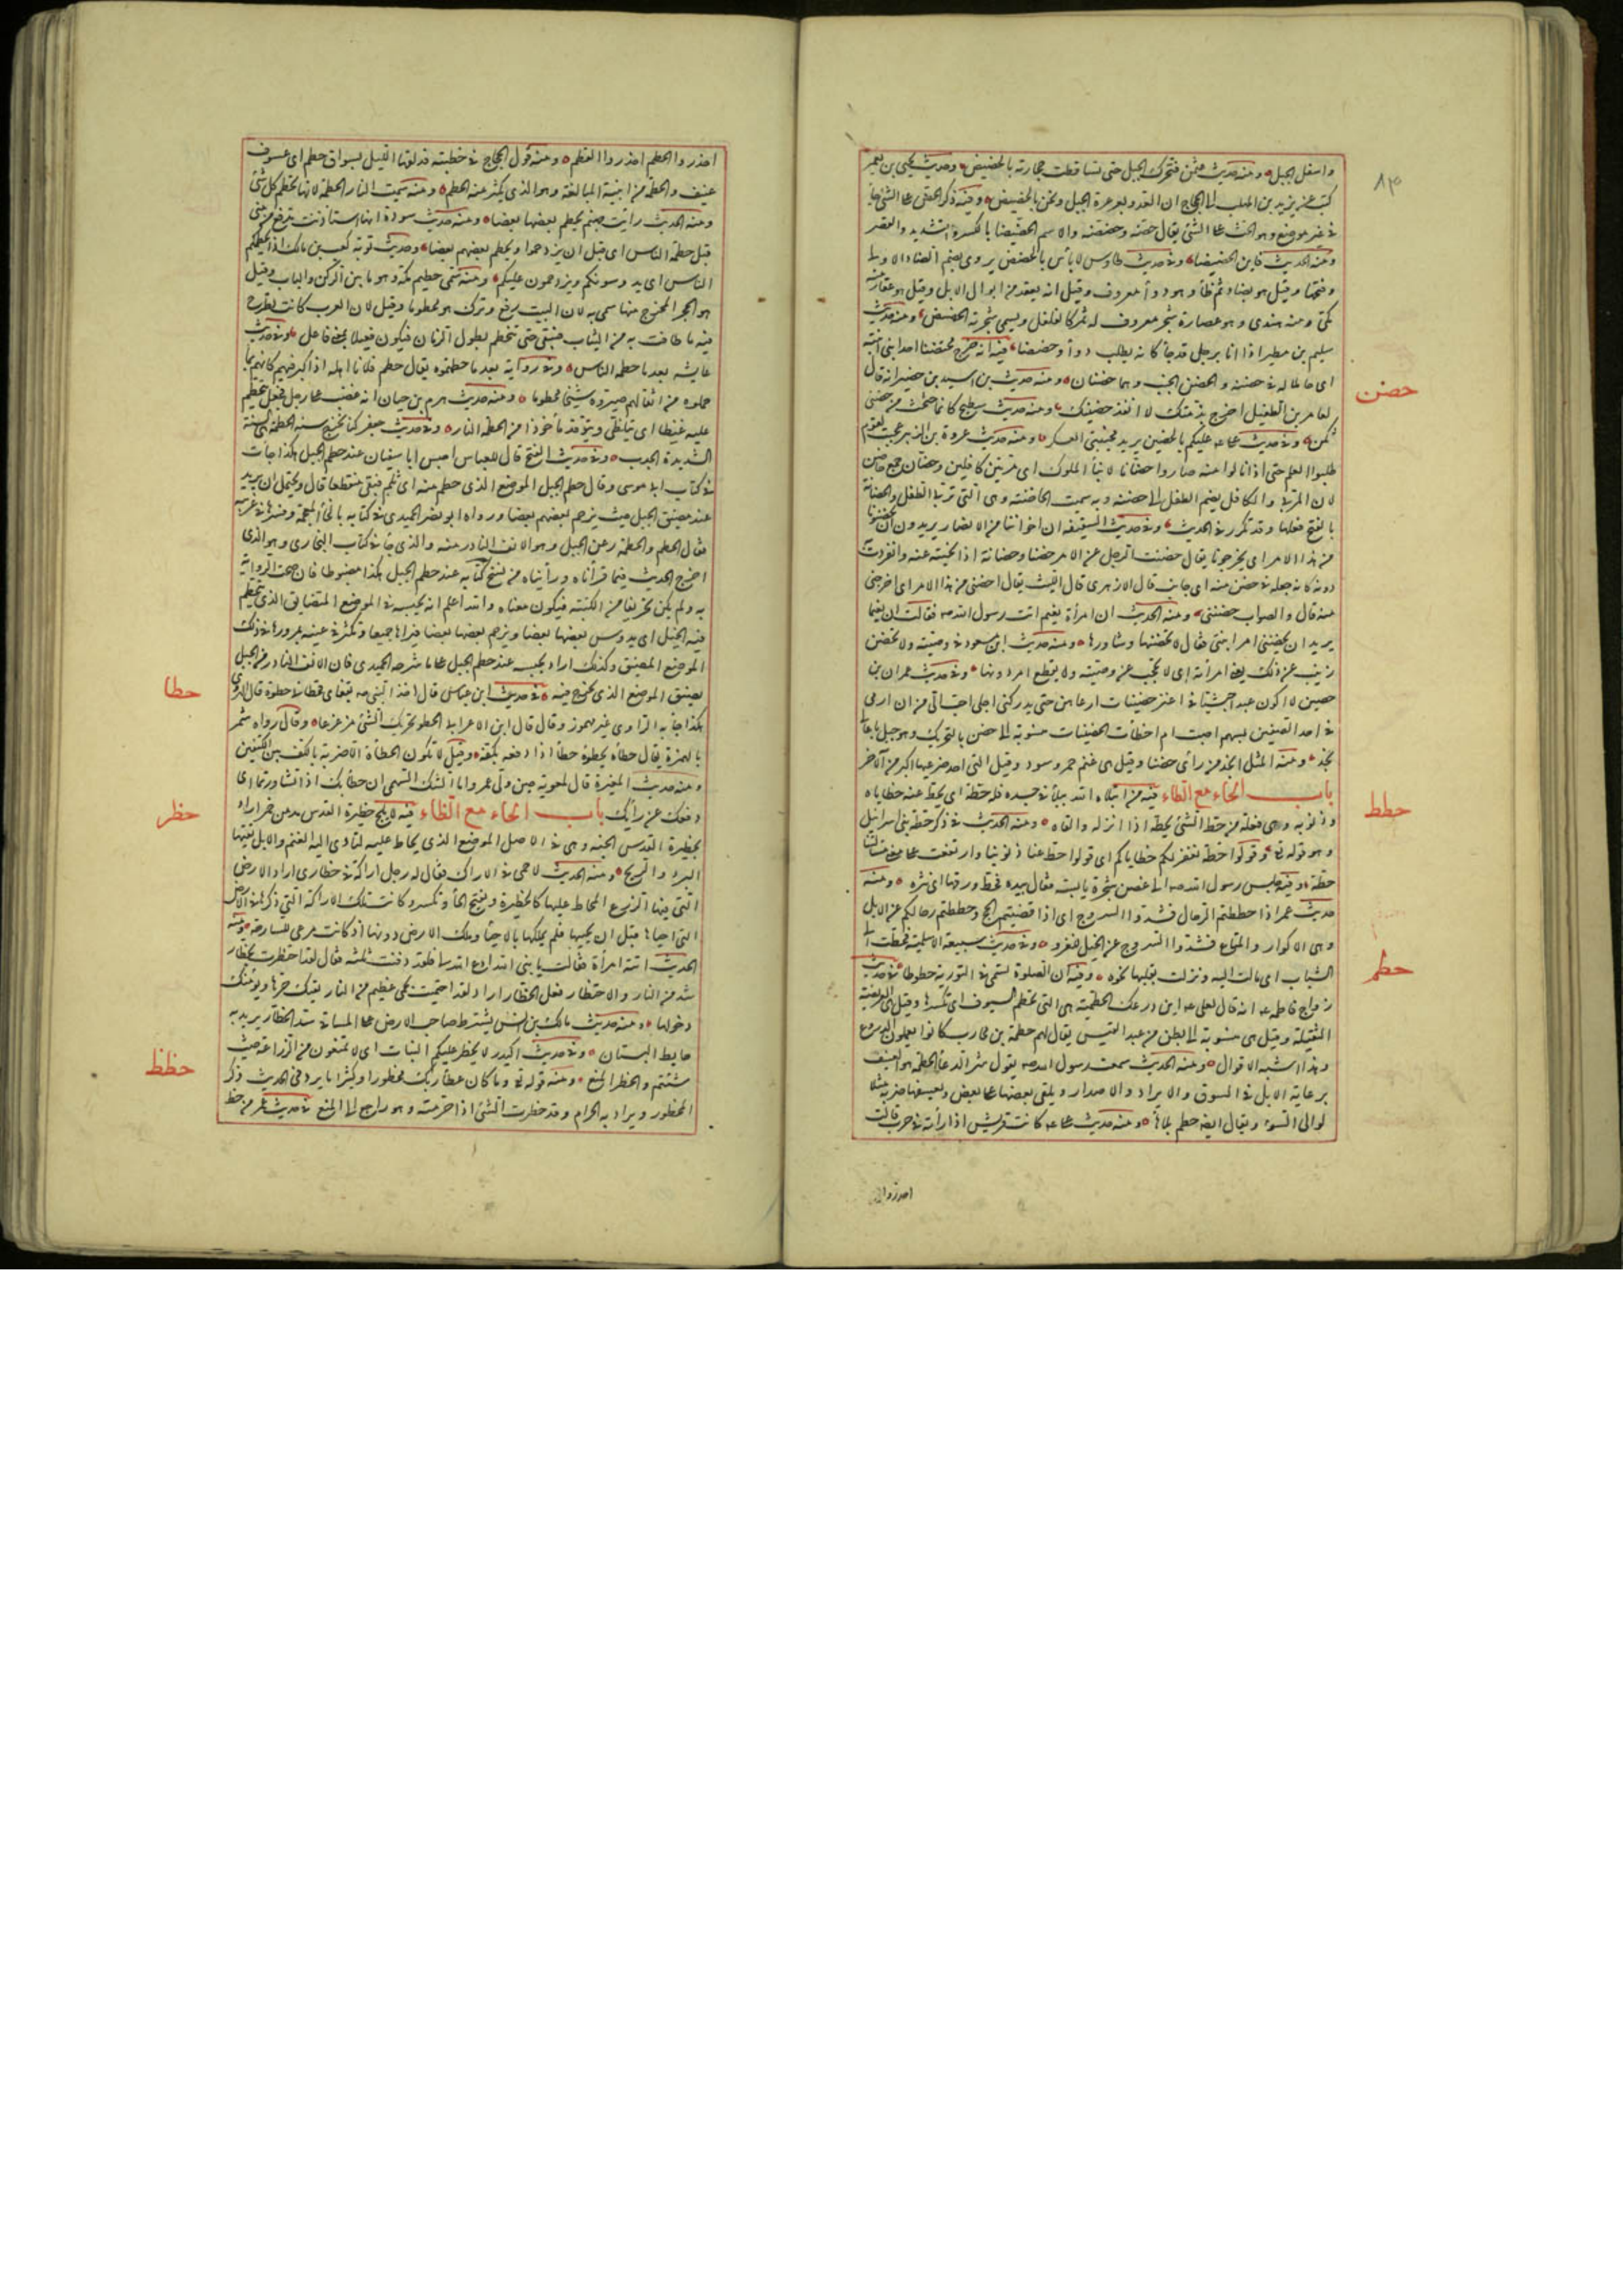 ٨٣
واسفل الجبل ومنه حديث عثمن فتحرك الجبل حتى تساقطت حجارته بالحضيض وحديث يحيى بن يعمر
كتب عن يزيد بن المهلب الى الحجاج ان العدو بعرعرة الجبل ونحن بالحضيض وفيه ذكر الحض على الشئ جاء
في غير موضع وهو الحث على الشئ يقال حضه وحضضه والاسم الحضيضا بالكسرة والتشديد والقصر
ومنه الحديث فاين الحضيضا وفي حديث طاوس لا بأس بالحضض يروى بضم الضاد الاولى
وفتحها وقيل هو بضاد ثم ظاء وهو دواء معروف وقيل انه يعقد من ابوال الابل وقيل هو عقار منه
مكى ومنه هندى وهو عصارة شجر معروف له ثمر كالفلفل ويسمى شجرته الحضض ومنه حديث
سليم بن مطير اذا انا برجل قد جاء كانه يطلب دواء وحضضا فيه انه خرج محتضنا احد ابنى ابنته
حضن
اى حاملا له في حضنه والحضن الجنب وهما حضنان ومنه حديث بن اسيد بن حضير انه قال
لعامر بن الطفيل اخرج بذمتك لا انفذ حضنيك ومنه حديث سطيح كانما حثحث من حضنى
ثكن وفي حديث على عليكم بالحضنين يريد مجنبتى العسكر ومنه حديث عروة بن الزبير عجبت لقوم
طلبوا العلم حتى اذا نالوا منه صاروا حضانا لابناء الملوك اى مربين كافلين وحضان جمع حاضن
لان المربى والكافل يضم الطفل الى حضنه وبه سميت الحاضنة وهى التى تربى الطفل والحضانة
بالفتح فعلها وقد تكرر في الحديث وفي حديث السقيفة ان اخواننا من الانصار يريدون ان يحضنونا
من هذا الامر اى يخرجونا يقال حضنت الرجل عن الامر حضنا وحضانة اذا نحيته عنه وانفردت به
دونه كانه جعله في حضن منه اى جانب قال الازهرى قال الليث يقال احضنى من هذا الامر اى اخرجنى
منه قال والصواب حضننى ومنه الحديث ان امرأة نعيم اتت رسول الله ص فقالت ان نعيما
يريد ان يحضننى امر ابنتى فقال لا تحضنها وشاورها ومنه حديث ابن مسعود في وصيته ولا تحضن
زينب عن ذلك يعنى امرأته اى لا تحجب عن وصيته ولا يقطع امر دونها وفي حديث عمران بن
حصين لان اكون عبدا حبشيا في اعنز حضنيات ارعاهن حتى يدركنى اجلى احب الى من ان ارمى
في احد الصفين بسهم اصبت ام اخطأت الحضنيات منسوبة الى حضن بالتحريك وهو جبل باعالى
نجد ومنه المثل انجد من رأى حضنا وقيل هى غنم حمر وسود وقيل التى احد ضرعيها اكبر من الآخر
باب الحاء مع الطاء فيه من ابتلاه الله ببلاء في جسده فله حطة اى يحط عنه خطاياه
حطط
وذنوبه وهى فعلة من حط الشئ يحطه اذا انزله والقاه ومنه الحديث في ذكر حطة بنى اسرائيل
وهو قوله تع وقولوا حطة نغفر لكم خطاياكم اى قولوا حط عنا ذنوبنا وارتفعت على معنى مسألتنا
حطة وفيه جلس رسول الله ص الى غصن شجرة يابسة فقال بيده فحط ورقها اى نثره ومنه
حديث عمر اذا حططتم الرحال فشدوا السروج اى اذا قضيتم الحج وحططتم رحالكم عن الابل
وهى الاكوار والمتاع فشدوا السروج عن الخيل للغزو وفي حديث سبيعة الاسلمية فحطت الى
الشباب اى مالت اليه ونزلت بقلبها نحوه وفيه ان الصلوة تسمى في التورية حطوطا في حديث
حطم
زواج فاطمة انه قال لعلى اين درعك الحطمية هى التى تحطم السيوف اى تكسرها وقيل هى العريضة
الثقيلة وقيل هى منسوبة الى بطن من عبد القيس يقال لهم حطمة بن محارب كانوا يعملون الدروع
وهذا اشبه الاقوال ومنه الحديث سمعت رسول الله ص يقول شر الرعاء الحطمة هو العنيف
برعاية الابل في السوق والايراد والاصدار ويلقى بعضها على بعض ويعسفها ضربه مثلا
لوالى السوء ويقال ايضا حطم بلا هاء ومنه حديث على كانت قريش اذا رأته في حرب قالت
احذروا
احذروا الحطم احذروا القطم ومنه قول الحجاج في خطبته قد لفها الليل بسواق حطم اى عسوف
عنيف والحطم من ابنية المبالغة وهو الذى يكثر منه الحطم ومنه سميت النار الحطمة لانها تحطم كل شئ
ومنه الحديث رايت جهنم يحطم بعضها بعضا ومنه حديث سودة انها استأذنت تدفع من منى
قبل حطمة الناس اى قبل ان يزدحموا ويحطم بعضهم بعضا وحديث توبة كعب بن مالك اذا يحطمكم
الناس اى يدوسونكم ويزدحمون عليكم ومنه سمى حطيم مكة وهو ما بين الركن والباب وقيل
هو الحجر المخرج منها سمى به لان البيت رفع وترك هو محطوما وقيل لان العرب كانت تطرح
فيه ما طافت به من الثياب فتبقى حتى تنحطم بطول الزمان فيكون فعيلا بمعنى فاعل وفي حديث
عايشه بعد ما حطمه الناس وفي رواية بعد ما حطمتموه يقال حطم فلانا اهله اذا كبر فيهم كانهم بما
حملوه من اثقالهم صيروه شيخا محطوما ومنه حديث هرم بن حيان انه غضب على رجل فجعل يتحطم
عليه غيظا اى يتلظى ويتوقد مأخوذا من الحطمة النار وفي حديث جعفر كنا نخرج سنة الحطمة هى السنة
الشديدة الجدب وفي حديث الفتح قال للعباس احبس ابا سفيان عند حطم الجبل هكذا جاءت
في كتاب ابى موسى وقال حطم الجبل الموضع الذى حطم منه اى ثلم فبقى منقطعا قال ويحتمل ان يريد
عند مضيق الجبل حيث يزحم بعضهم بعضا ورواه ابو نصر الحميدى في كتابه بالخاء المعجمة وفسرها في غريبه
فقال الحطم والحطمة رعن الجبل وهو الانف النادر منه والذى جاء في كتاب البخارى وهو الذى
اخرج الحديث فيما قرأناه ورأيناه من نسخ كتابه عند حطم الخيل هكذا مضبوطا فان صحت الرواية
به ولم يكن تحريفا من الكتبة فيكون معناه والله اعلم انه يحبسه في الموضع المتضايق الذى يتحطم
فيه الخيل اى يدوس بعضها بعضا ويزحم بعضها بعضا فيراها جميعا وتكثر في عينه بمرورها في ذلك
الموضع المضيق وكذلك اراد بحبسه عند حطم الجبل على ما شرحه الحميدى فان الانف النادر من الجبل
يضيق الموضع الذى يخرج فيه في حديث ابن عباس قال اخذ النبى ص بقفاى فحطانى حطوة قال الهروى
حطا
هكذا جاء به الراوى غير مهموز وقال قال ابن الاعرابى الحطو تحريك الشئ مزعزعا وقال رواه شمر
بالهمزة يقال حطأه يحطؤه حطأ اذا دفعه بكفه وقيل لا تكون الحطأة الا ضربة بالكف بين الكتفين
ومنه حديث المغيرة قال لمعوية حين ولى عمروا ما لبثك السهمى ان حطأ بك اذا تشاورتما اى
دفعك عن رأيك باب الحاء مع الظاء فيه لا يلج حظيرة القدس مدمن خمر اراد
حظر
بحظيرة القدس الجنة وهى في الاصل الموضع الذى يحاط عليه لتأوى اليه الغنم والابل يقيها
البرد والريح ومنه الحديث لا حمى في الاراك فقال له رجل اراكة في حظارى اراد الارض
التى فيها الزرع المحاط عليها كالحظيرة وبفتح الحاء وتكسر وكانت تلك الاراكة التى ذكرها في الارض
التى احياها قبل ان يحييها فلم يملكها بالاحياء وملك الارض دونها اذ كانت مرعى للسارحة ومنه
الحديث اتته امرأة فقالت يا نبى الله ادع الله لى فلقد دفنت ثلثة فقال لقد احتظرت بحظار
شديد من النار والاحتظار فعل الحظار اراد لقد احتميت بحمى عظيم من النار يقيك حرها ويؤمنك
دخولها ومنه حديث مالك بن انس يشترط صاحب الارض على المساقى سد الحظار يريد به
حايط البستان وفي حديث اكيدر لا يحظر عليكم النبات اى لا تمنعون من الزراعة حيث
شئتم والحظر المنع ومنه قوله تع وما كان عطاء ربك محظورا وكثيرا ما يرد في الحديث ذكر
حظظ
المحظور ويراد به الحرام وقد حظرت الشئ اذا حرمته وهو راجع الى المنع في حديث عمر من حظ